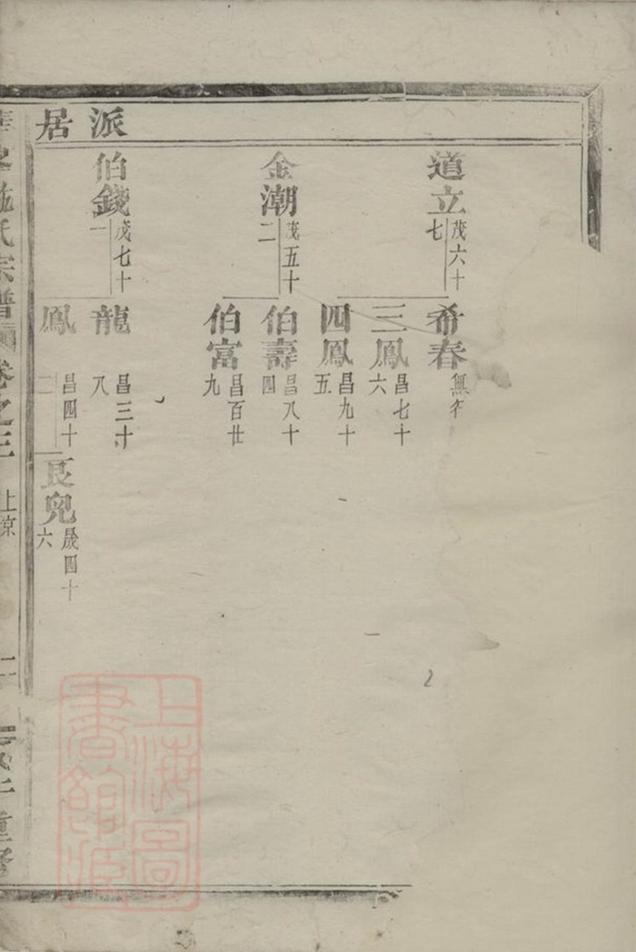 派居
道立 茂六十七
希春 無名
三鳳 昌七十六
四鳳 昌九十五
金潮 茂五十二
伯壽 昌八十四
伯富 昌百廿九
伯錢 茂七十一
龍 昌三十八
鳳 昌四十二
長兒 晟四十六
氏宗譜
卷之三
上京
二
重修
上海圖書館藏